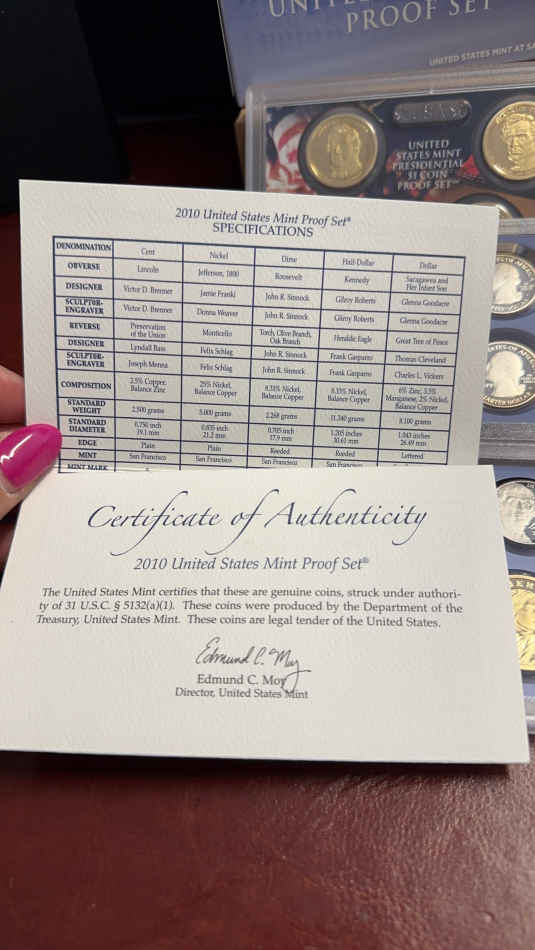 UNITED
PROOF SET
UNITED STATES MINT AT SA
UNITED
STATES MINT
PRESIDENTIAL
$1 COIN
PROOF SET™
2010 United States Mint Proof Set®
SPECIFICATIONS
DENOMINATION Cent Nickel Dime Half-Dollar Dollar
OBVERSE Lincoln Jefferson, 1800 Roosevelt Kennedy Sacagawea and Her Infant Son
DESIGNER Victor D. Brenner Jamie Franki John R. Sinnock Gilroy Roberts Glenna Goodacre
SCULPTOR-ENGRAVER Victor D. Brenner Donna Weaver John R. Sinnock Gilroy Roberts Glenna Goodacre
REVERSE Preservation of the Union Monticello Torch, Olive Branch, Oak Branch Heraldic Eagle Great Tree of Peace
DESIGNER Lyndall Bass Felix Schlag John R. Sinnock Frank Gasparro Thomas Cleveland
SCULPTOR-ENGRAVER Joseph Menna Felix Schlag John R. Sinnock Frank Gasparro Charles L. Vickers
COMPOSITION 2.5% Copper, Balance Zinc 25% Nickel, Balance Copper 8.33% Nickel, Balance Copper 8.33% Nickel, Balance Copper 6% Zinc, 3.5% Manganese, 2% Nickel, Balance Copper
STANDARD WEIGHT 2.500 grams 5.000 grams 2.268 grams 11.340 grams 8.100 grams
STANDARD DIAMETER 0.750 inch 19.1 mm 0.835 inch 21.2 mm 0.705 inch 17.9 mm 1.205 inches 30.61 mm 1.043 inches 26.49 mm
EDGE Plain Plain Reeded Reeded Lettered
MINT San Francisco San Francisco San Francisco San Francisco
MINT MARK
Certificate of Authenticity
2010 United States Mint Proof Set®
The United States Mint certifies that these are genuine coins, struck under authori-
ty of 31 U.S.C. § 5132(a)(1). These coins were produced by the Department of the
Treasury, United States Mint. These coins are legal tender of the United States.
Edmund C. Moy
Edmund C. Moy
Director, United States Mint